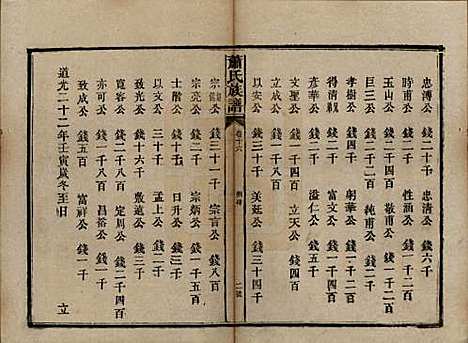 忠溥公 錢二十千 忠清公 錢六千
時敏公 錢一千八百 性涵公 錢一千二百
玉山公 錢二千 敬甫公 錢二千四百
巨三公 錢二千二百 純甫公 錢二千
孝樹公 錢二千二百 躬華公 錢三千
得清公 錢一千 富文公 錢四千
彥華公 錢一千二百 溢仁公 錢一千
文聖公 錢四百 立天公 錢四百
立成公 錢二千
以安公 錢三十千 美廷公 錢三十四千
蕭氏族譜
卷十六
二
宗公 錢三十一千 宗言公 錢八百
宗亮公 錢一千八百 宗炳公 錢一千五百
士酷公 錢一千 日升公 錢二千
以文公 三十千 孟上公 錢二千
致光公 錢十六千 敷遠公 錢三千
寬容公 錢二千 定周公 錢二千四百
可文公 錢一千八百 昌裕公 錢一千
致成公 錢五百 富祥公 錢一千
道光二十二年壬寅歲冬至日 立